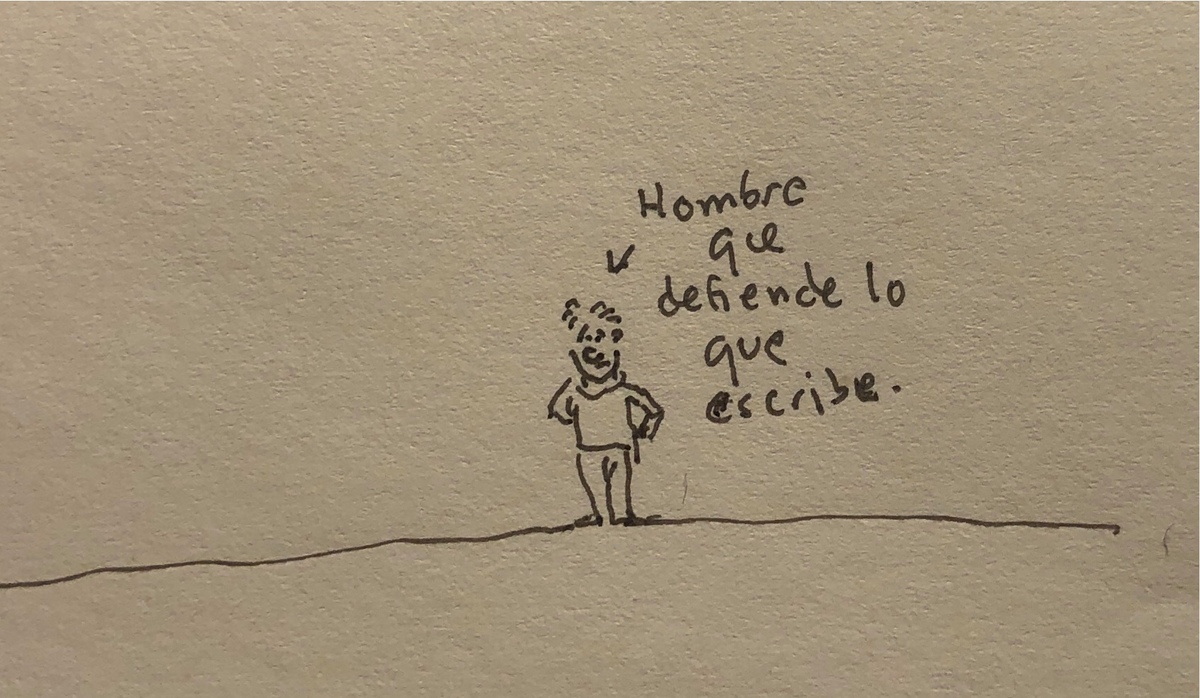 Hombre
que
defiende lo
que
escribe.